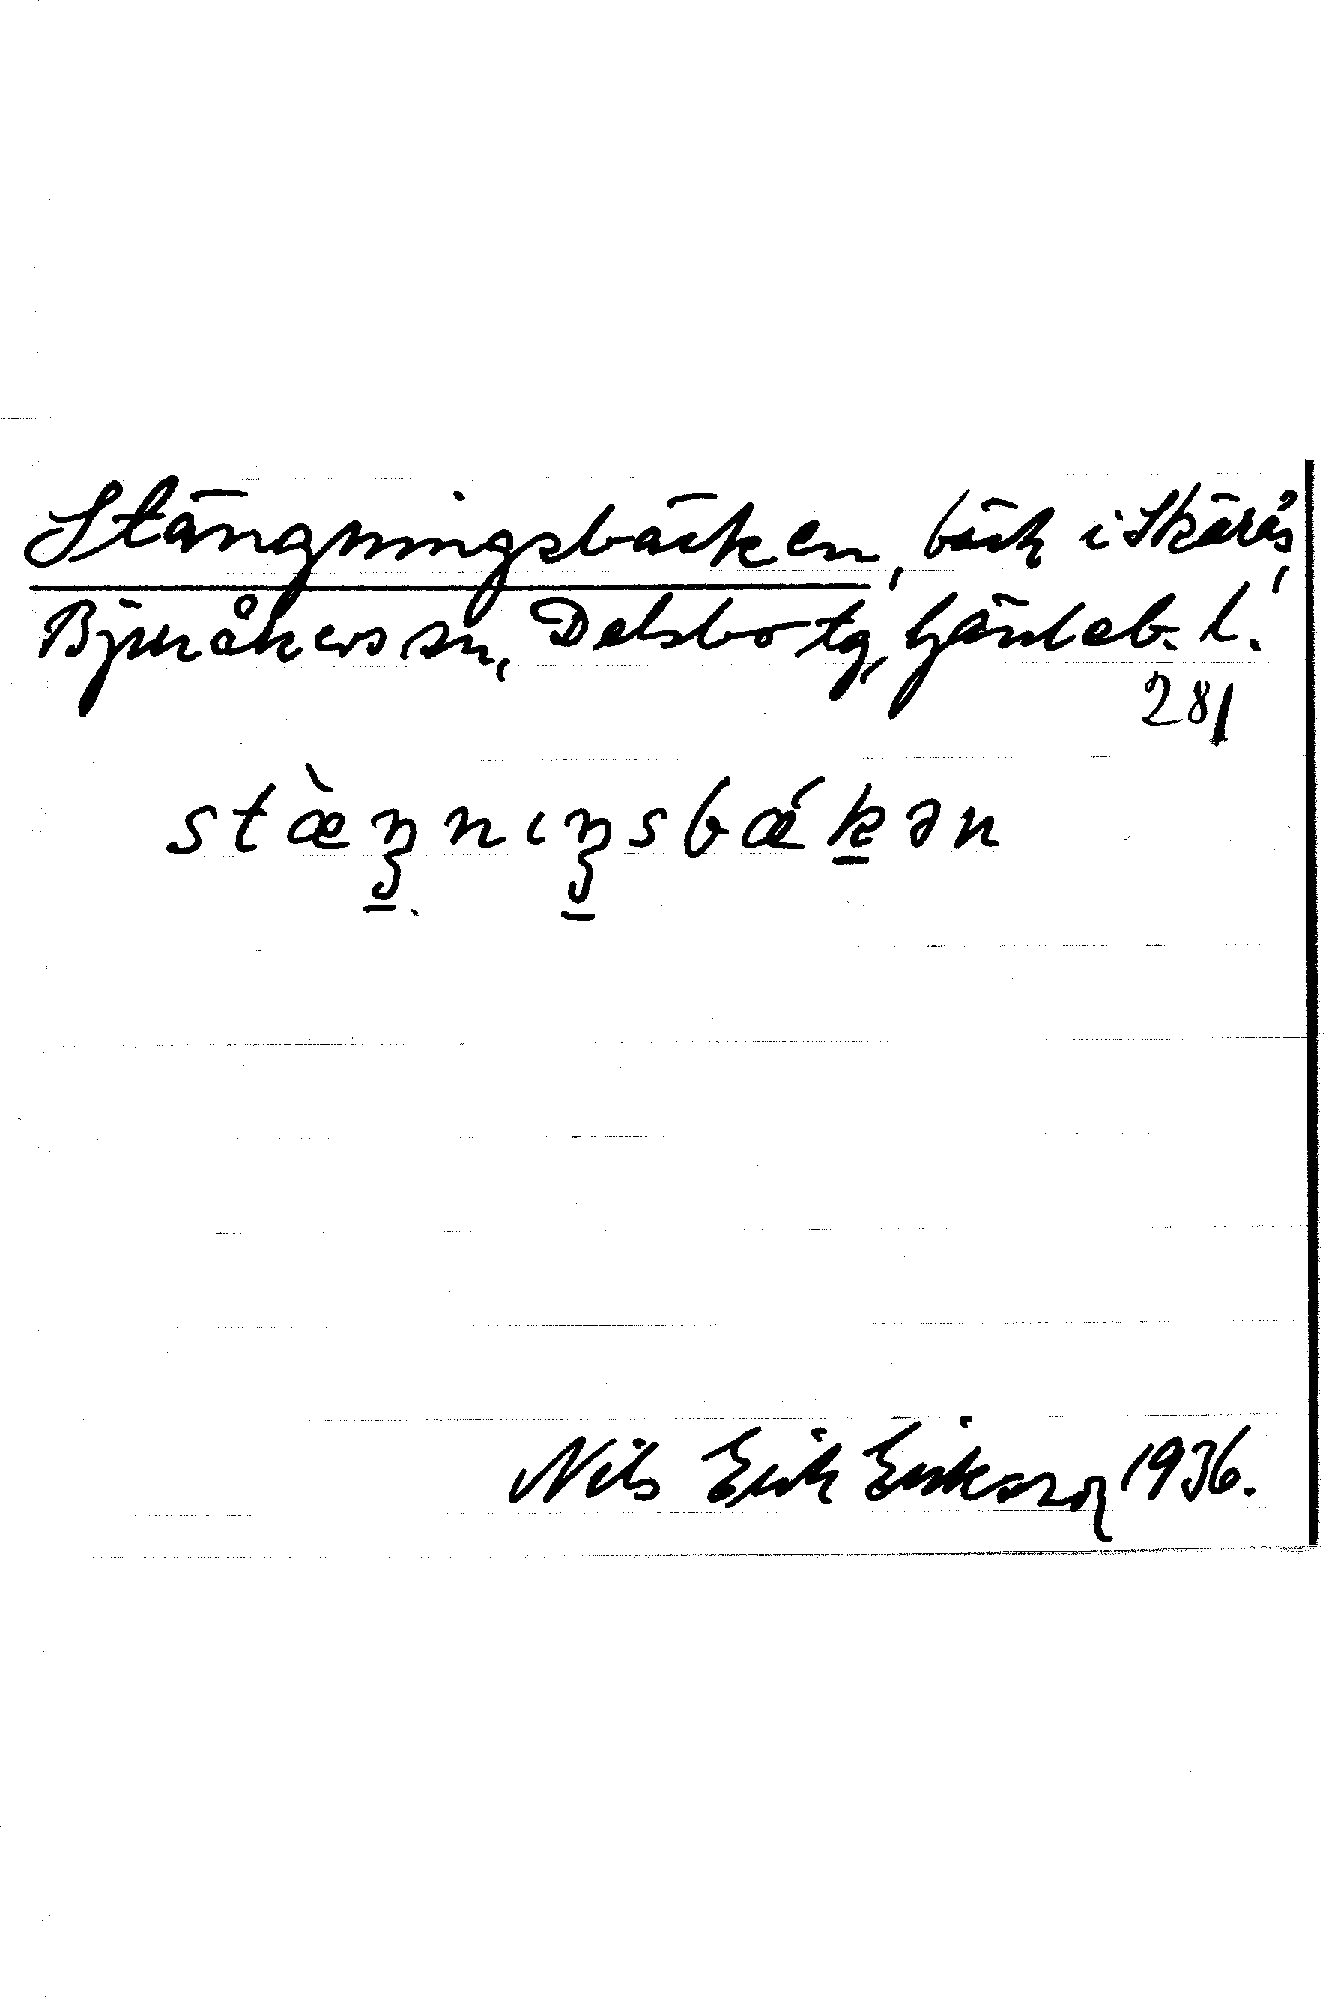 Stängningsbäcken, bäck i Skärås,
Bjuråkers sn, Delsbo tg, Gävleb. l.
281
stæ̀ŋ̱nıŋ̱sbǽḵən
Nils Erik Eriksson 1936.